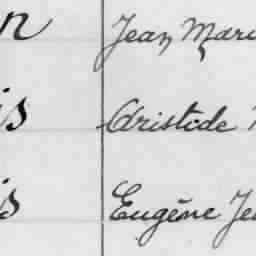 n Jean Mari
is Aristide
is Eugène Je